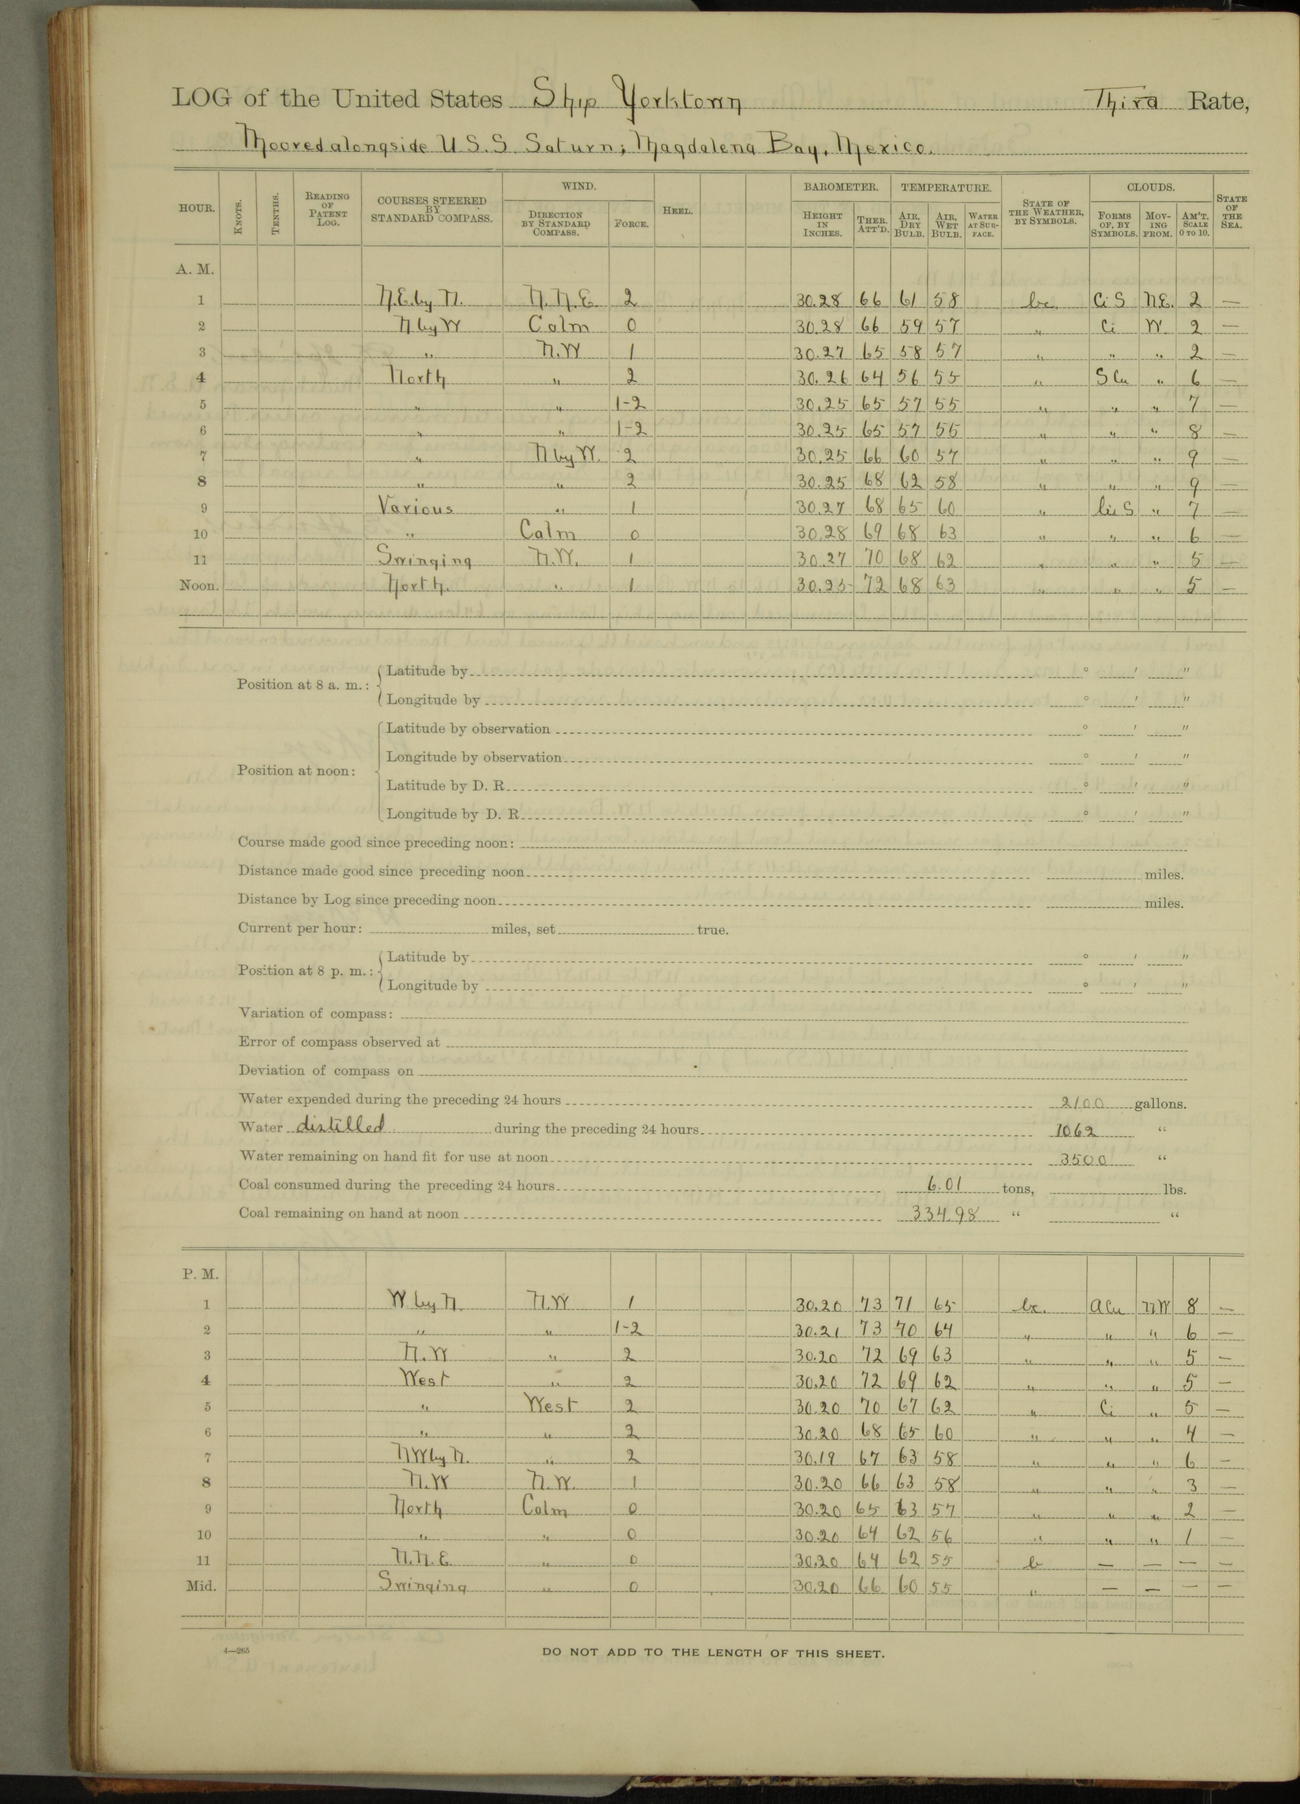 LOG of the United States Ship Yorktown Third Rate,
Moored alongside U.S.S. Saturn; Magdalena Bay, Mexico.
HOUR. KNOTS. TENTHS. READING OF PATENT LOG. COURSES STEERED BY STANDARD COMPASS. WIND. DIRECTION BY STANDARD COMPASS. FORCE. HEEL. BAROMETER. HEIGHT IN INCHES. THER. ATT'D. TEMPERATURE. AIR, DRY BULB. AIR, WET BULB. WATER AT SURFACE. STATE OF THE WEATHER, BY SYMBOLS. CLOUDS. FORMS OF, BY SYMBOLS. MOVING FROM. AM'T. SCALE 0 TO 10. STATE OF THE SEA.
A. M.
1 N.E. by N. N.N.E. 2 30.28 66 61 58 bc. Ci S N.E. 2 —
2 N by W Calm 0 30.28 66 59 57 " Ci W. 2 —
3 " N.W 1 30.27 65 58 57 " " " 2 —
4 North " 2 30.26 64 56 55 " S Cu " 6 —
5 " " 1-2 30.25 65 57 55 " " " 7 —
6 " " 1-2 30.25 65 57 55 " " " 8 —
7 " N by W. 2 30.25 66 60 57 " " " 9 —
8 " " 2 30.25 68 62 58 " " " 9 —
9 Various " 1 30.27 68 65 60 " Ci S " 7 —
10 " Calm 0 30.28 69 68 63 " " " 6 —
11 Swinging N.W. 1 30.27 70 68 62 " " " 5 —
Noon. North. " 1 30.25 72 68 63 " " " 5 —
Position at 8 a. m.: Latitude by ° ' "
Longitude by ° ' "
Position at noon: Latitude by observation ° ' "
Longitude by observation ° ' "
Latitude by D. R. ° ' "
Longitude by D. R. ° ' "
Course made good since preceding noon:
Distance made good since preceding noon miles.
Distance by Log since preceding noon miles.
Current per hour: miles, set true.
Position at 8 p. m.: Latitude by ° ' "
Longitude by ° ' "
Variation of compass:
Error of compass observed at
Deviation of compass on
Water expended during the preceding 24 hours 2100 gallons.
Water distilled during the preceding 24 hours 1062 "
Water remaining on hand fit for use at noon 3500 "
Coal consumed during the preceding 24 hours 6.01 tons, lbs.
Coal remaining on hand at noon 334.98 " "
P. M.
1 W by N. N.W 1 30.20 73 71 65 bc. A Cu NW 8 —
2 " " 1-2 30.21 73 70 64 " " " 6 —
3 N.W " 2 30.20 72 69 63 " " " 5 —
4 West " 2 30.20 72 69 62 " " " 5 —
5 " West 2 30.20 70 67 62 " Ci " 5 —
6 " " 2 30.20 68 65 60 " " " 4 —
7 NW by N. " 2 30.19 67 63 58 " " " 6 —
8 N.W N.W. 1 30.20 66 63 58 " " " 3 —
9 North Calm 0 30.20 65 63 57 " " " 2 —
10 " " 0 30.20 64 62 56 " " " 1 —
11 N.N.E. " 0 30.20 64 62 55 b — — — —
Mid. Swinging " 0 30.20 66 60 55 " — — — —
4—265 DO NOT ADD TO THE LENGTH OF THIS SHEET.